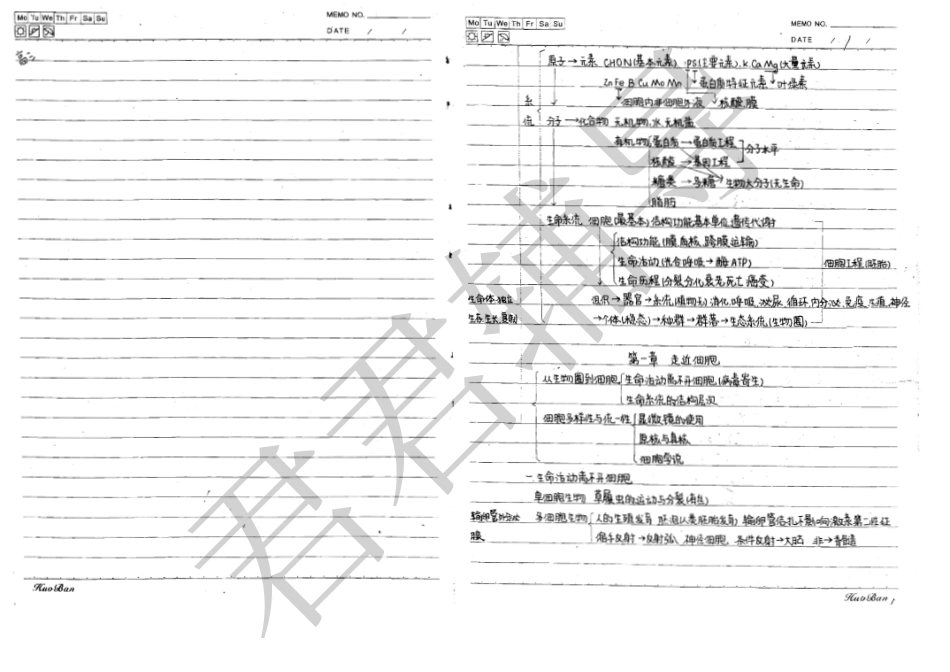 Mo Tu We Th Fr Sa Su
MEMO NO.
DATE / /
HuoBan
Mo Tu We Th Fr Sa Su
MEMO NO.
DATE / /
系统
原子→元素 CHON(基本元素) PS(主要元素) K Ca Mg(大量元素)
Zn Fe B Cu Mo Mn 蛋白质特征元素 叶绿素
核酸、膜
分子→化合物 无机物、水、无机盐
有机物 蛋白质→蛋白质工程
分子水平
核酸→基因工程
糖类→多糖→生物大分子(无生命)
脂肪
生命系统 细胞(最基本)结构功能基本单位,遗传代谢
结构功能(膜、质、核、跨膜运输)
生命活动(光合呼吸→酶ATP)
细胞工程(胚胎)
生命历程(分裂分化衰老死亡癌变)
生命体:独立
生存、生长、复制
组织→器官→系统(植物无)消化、呼吸、泌尿、循环、内分泌、免疫、生殖、神经
→个体(稳态)→种群→群落→生态系统(生物圈)
第一章 走近细胞
从生物圈到细胞 生命活动离不开细胞(病毒寄生)
生命系统的结构层次
细胞多样性与统一性 显微镜的使用
原核与真核
细胞学说
一.生命活动离不开细胞
单细胞生物 草履虫的运动与分裂
多细胞生物 人的生殖发育
缩手反射→反射弧、神经细胞 条件反射→大脑 非→脊髓
HuoBan 1
君君辅导